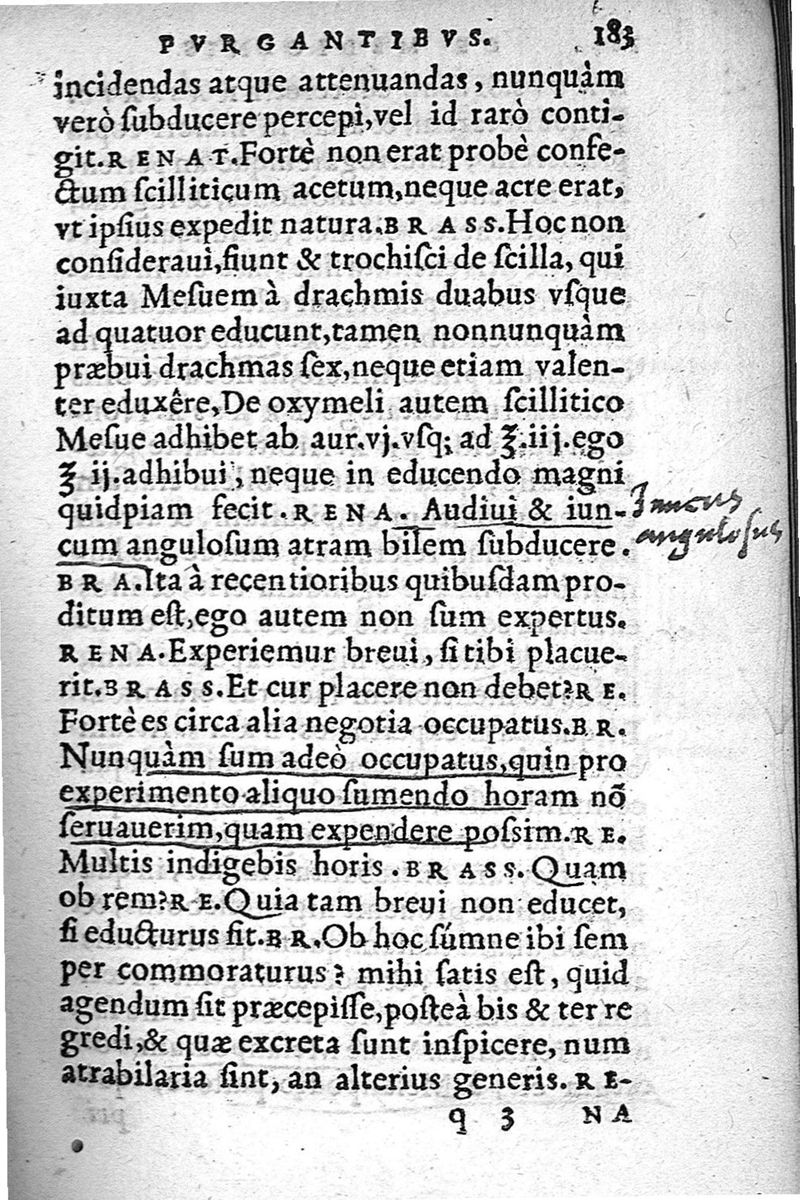 PVRGANTIBVS. 183
incidendas atque attenuandas, nunquàm
verò ſubducere percepi, vel id rarò conti-
git. RENAT. Fortè non erat probè confe-
ctum ſcilliticum acetum, neque acre erat,
vt ipſius expedit natura. BRASS. Hoc non
conſideraui, fiunt & trochiſci de ſcilla, qui
iuxta Meſuem à drachmis duabus vſque
ad quatuor educunt, tamen nonnunquàm
præbui drachmas ſex, neque etiam valen-
ter eduxêre, De oxymeli autem ſcillitico
Meſue adhibet ab aur. vj. vſq; ad ℥. iij. ego
℥ ij. adhibui, neque in educendo magni
quidpiam fecit. RENA. Audiui & iun-
Juncus
cum anguloſum atram bilem ſubducere.
anguloſus
BRA. Ita à recentioribus quibuſdam pro-
ditum eſt, ego autem non ſum expertus.
RENA. Experiemur breui, ſi tibi placue-
rit. BRASS. Et cur placere non debet? RE.
Fortè es circa alia negotia occupatus. BR.
Nunquàm ſum adeò occupatus, quin pro
experimento aliquo ſumendo horam nō
ſeruauerim, quam expendere poſsim. RE.
Multis indigebis horis. BRASS. Quam
ob rem? RE. Quia tam breui non educet,
ſi educturus ſit. BR. Ob hoc ſúmne ibi ſem
per commoraturus? mihi ſatis eſt, quid
agendum ſit præcepiſſe, poſteà bis & ter re
gredi, & quæ excreta ſunt inſpicere, num
atrabilaria ſint, an alterius generis. RE-
q 3 NA